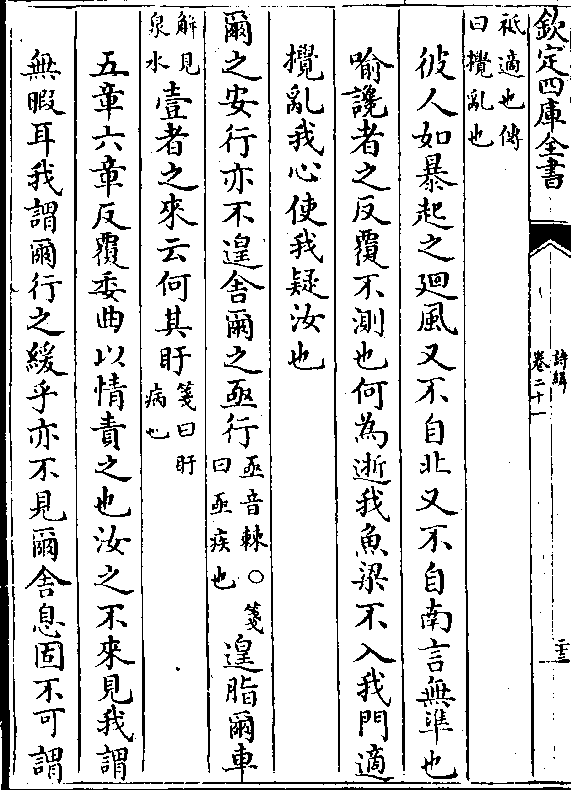 欽定四庫全書
詩緝
卷二十一
祗適也傳
曰攪亂也
彼人如暴起之迴風又不自北又不自南言無準也
喻讒者之反覆不測也何為逝我魚梁不入我門適
攪亂我心使我疑汝也
爾之安行亦不遑舍爾之亟行亟音棘○箋曰亟疾也遑脂爾車
解見泉水壹者之來云何其盱箋曰盱病也
五章六章反覆委曲以情責之也汝之不來見我謂
無暇耳我謂爾行之緩乎亦不見爾舍息固不可謂